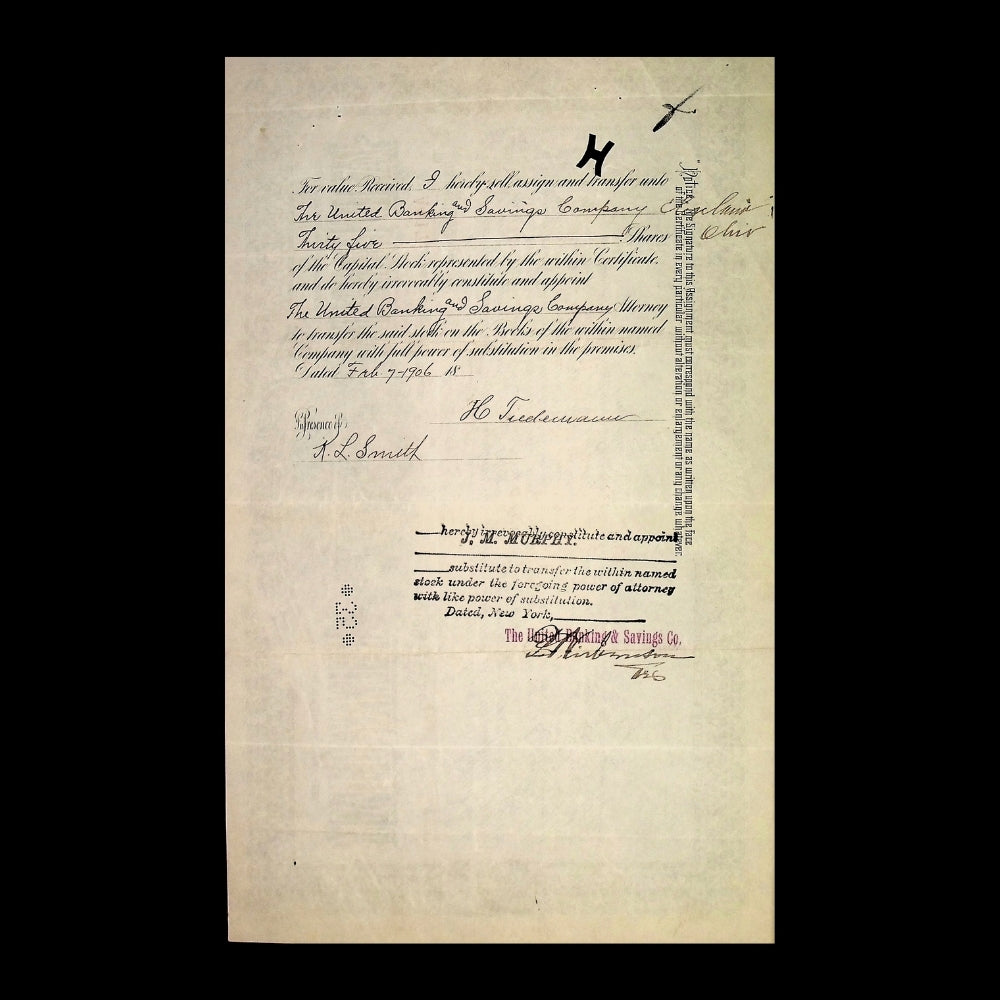 H
For value Received, I hereby sell, assign and transfer unto
The United Banking and Savings Company Cleveland
Ohio
Thirty five Shares
of the Capital Stock represented by the within Certificate,
and do hereby irrevocably constitute and appoint
The United Banking and Savings Company Attorney
to transfer the said stock on the Books of the within named
Company with full power of substitution in the premises.
Dated Feb. 7-1906 18
H Tiedemann
In Presence of
K. L. Smith
Notice, The Signature to this Assignment must correspond with the name as written upon the face
of the Certificate in every particular without alteration or enlargement or any change whatever.
hereby irrevocably constitute and appoint
J. M. MURPHY.
substitute to transfer the within named
stock under the foregoing power of attorney
with like power of substitution.
Dated, New York,
The United Banking & Savings Co.